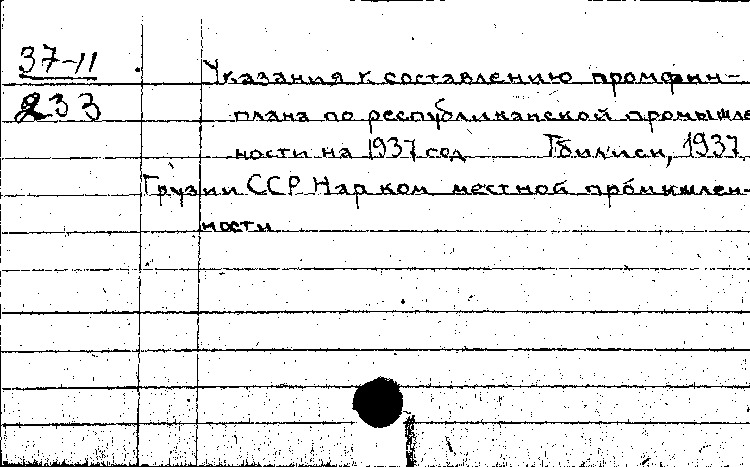 37-11
233
Указания к составлению промфин-
плана по республиканской промышле
ности на 1937 год Тбилиси, 1937
Грузии ССР Нар ком местной промышлен-
ности